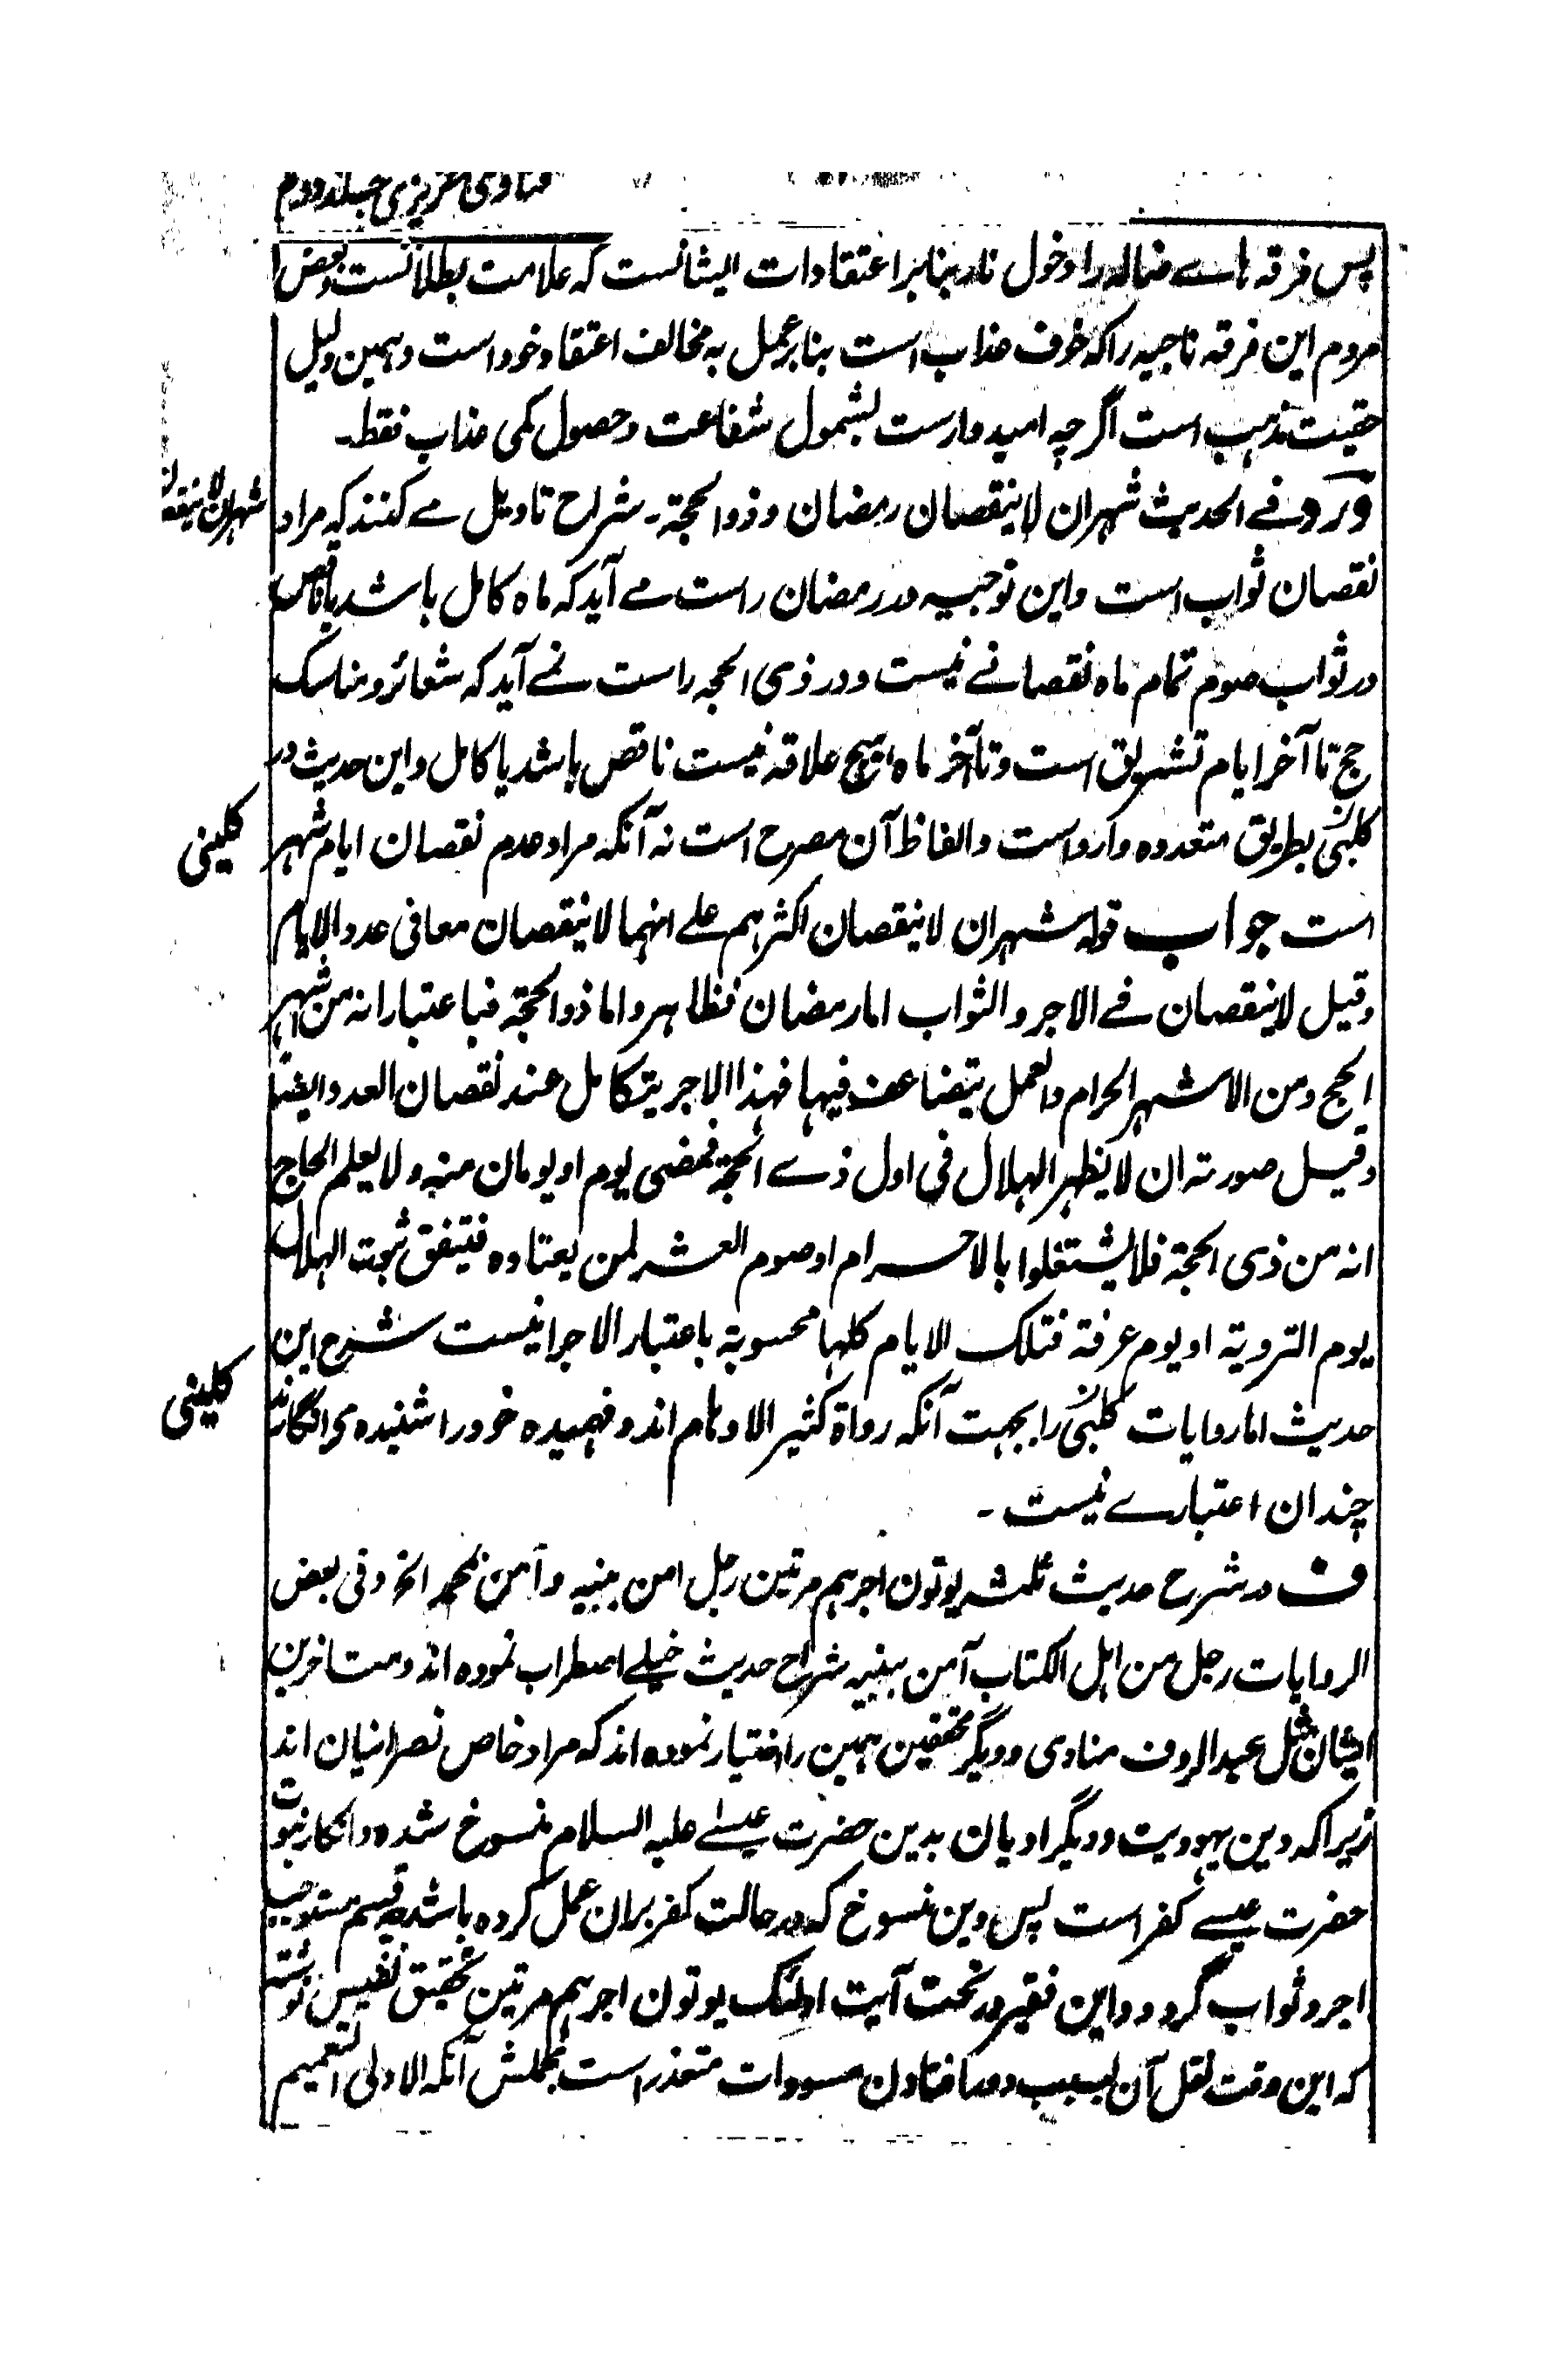 فتاوی عزیزی جلد دوم
پس فرقہ ہاے ضالہ را دخول نار بنابر اعتقادات ایشانست کہ علامت بطلانست و بعض
مردم این فرقہ ناجیہ را کہ خوف عذاب است بنابر عمل بہ مخالف اعتقاد خود است و ہمین دلیل
حقیت مذہب است اگرچہ امیدوارست بشمول شفاعت و حصول کمی عذاب فقط۔
ورد فے الحدیث شہران لا ینقصان رمضان و ذوالحجۃ۔ شراح تاویل مے کنند کہ مراد
شہران لا ینقصان
نقصان ثواب است و این توجیہ در رمضان راست مے آید کہ ماہ کامل باشد یا ناقص
در ثواب صوم تمام ماہ نقصانے نیست و در ذی الحجہ راست نمے آید کہ شعائر و مناسک
حج تا آخر ایام تشریق است و تا آخر ماہ ہیچ علاقہ نیست ناقص باشد یا کامل و این حدیث در
کلینی بطریق متعددہ وارد است و الفاظ آن مصرح است نہ آنکہ مراد عدم نقصان ایام شہر
کلینی
است جواب قولہ شہران لا ینقصان اکثرہم علے انہما لا ینقصان معا فی عدد الایام
وقیل لا ینقصان فے الاجر و الثواب اما رمضان فظاہر و اما ذوالحجۃ فباعتبار انہ من شہر
الحج و من الاشہر الحرام و العمل یتضاعف فیہا فہذا الاجر یتکامل عند نقصان العدد ایضا
وقیل صورتہ ان لا یظہر الہلال فی اول ذے الحجۃ فمضی یوم او یومان منہ و لا یعلم الحاج
انہ من ذی الحجۃ فلا یشتغلوا بالاحرام او صوم العشر لمن یعتادہ فیتفق ثبوت الہلال
یوم الترویۃ او یوم عرفۃ فتلک الایام کلہا محسوبۃ باعتبار الاجر اینست شرح این
حدیث اما روایات کلینی را بجہت آنکہ رواۃ کثیر الاوہام اند و فہمیدہ خود را شنیدہ می انگارند
کلینی
چندان اعتبارے نیست۔
ف در شرح حدیث ثلثہ یوتون اجرہم مرتین رجل امن بنبیہ و آمن بمحمد الخ و فی بعض
الروایات رجل من اہل الکتاب آمن بنبیہ شراح حدیث خیلے اضطراب نمودہ اند و متاخرین
ایشان مثل عبد الروف مناوی و دیگر محققین ہمین را اختیار نمودہ اند کہ مراد خاص نصرانیان اند
زیراکہ دین یہودیت و دیگر ادیان بدین حضرت عیسے علیہ السلام منسوخ شدہ و انکار نبوت
حضرت عیسے کفر است پس دین منسوخ کہ در حالت کفر بران عمل کردہ باشد چہ قسم مستوجب
اجر و ثواب گردد و این فقیر در تحت آیت اولئک یوتون اجرہم مرتین تحقیق نفیس نوشتہ
کہ این وقت نقل آن بسبب دور افتادن مسودات متعذر است مجملش آنکہ الاولی التعمیم